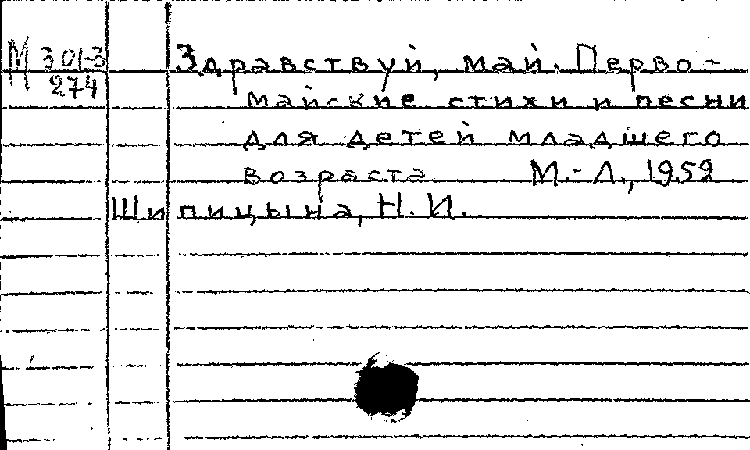 М 301-3
274
Здравствуй, май. Перво-
майские стихи и песни
для детей младшего
возраста. М.-Л., 1952
Шипицына, Н. И.